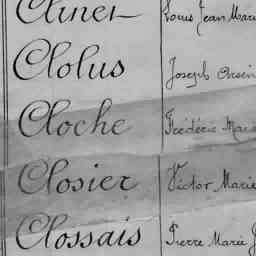 Clinet Louis Jean Mari
Clolus Joseph Arsèn
Cloche Frédéric Marie
Closier Victor Marie
Clossais Pierre Marie J